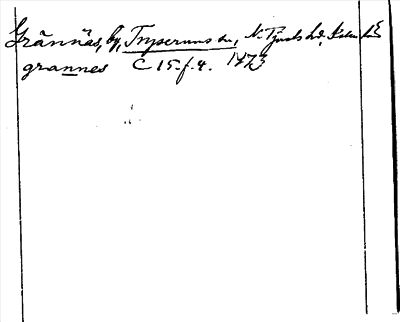 Grännäs, by, Tryserums sn, N. Tjusts hd, Kalm. l.
grannes C 15 f. 4. 1473